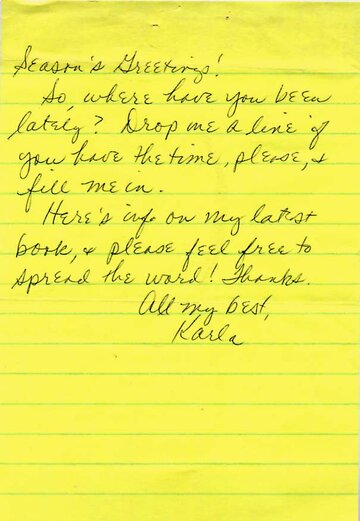 Season's Greetings!
So, where have you been
lately? Drop me a line if
you have the time, please, &
fill me in.
Here's info on my latest
book, & please feel free to
spread the word! Thanks.
All my best,
Karla